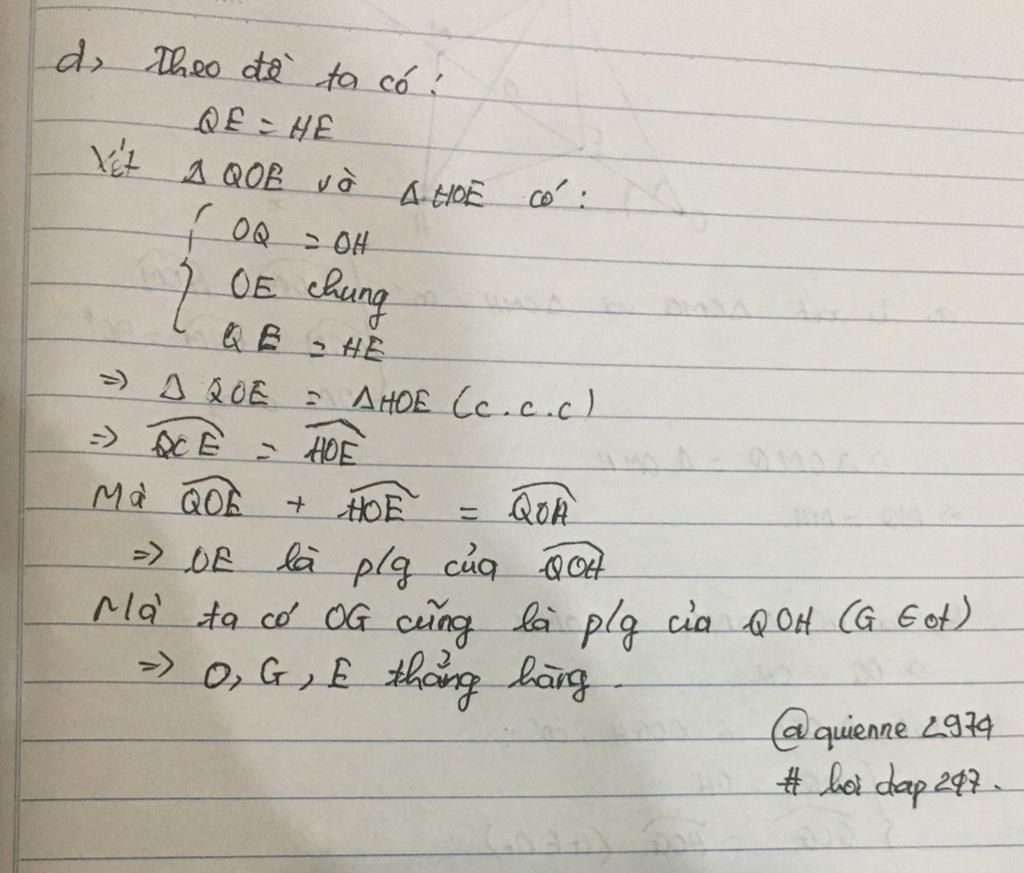 d, Theo đề ta có:
QE = HE
Xét Δ QOE và Δ HOE có:
OQ = OH
OE chung
QE = HE
=> Δ QOE = Δ HOE (c.c.c)
=> QCE = HOE
Mà QOE + HOE = QOH
=> OE là p/g của QOH
Mà ta có OG cũng là p/g của QOH (G ∈ Ot)
=> O, G, E thẳng hàng.
@quienne 2974
# hoi dap 247.